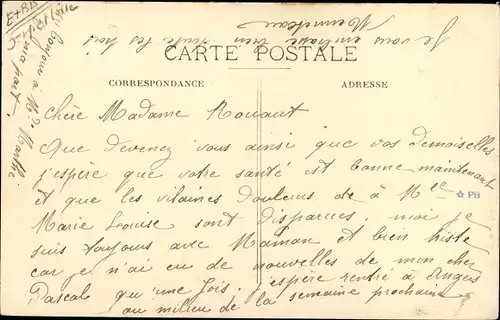 CARTE POSTALE
CORRESPONDANCE
ADRESSE
Chère Madame Rouaut
Que devenez vous ainsi que vos demoiselles
j'espère que votre santé est bonne maintenant
et que les vilaines douleurs de à Melle
Marie Louise sont disparues, moi je
suis toujours avec Maman et bien triste
car je n'ai eu de nouvelles de mon cher
Pascal qu'une fois. j'espère rentré à Angers
au milieu de la semaine prochaine
Je vous embrasse bien toute les trois
Bonjour à Mme
ma part
☆ PB